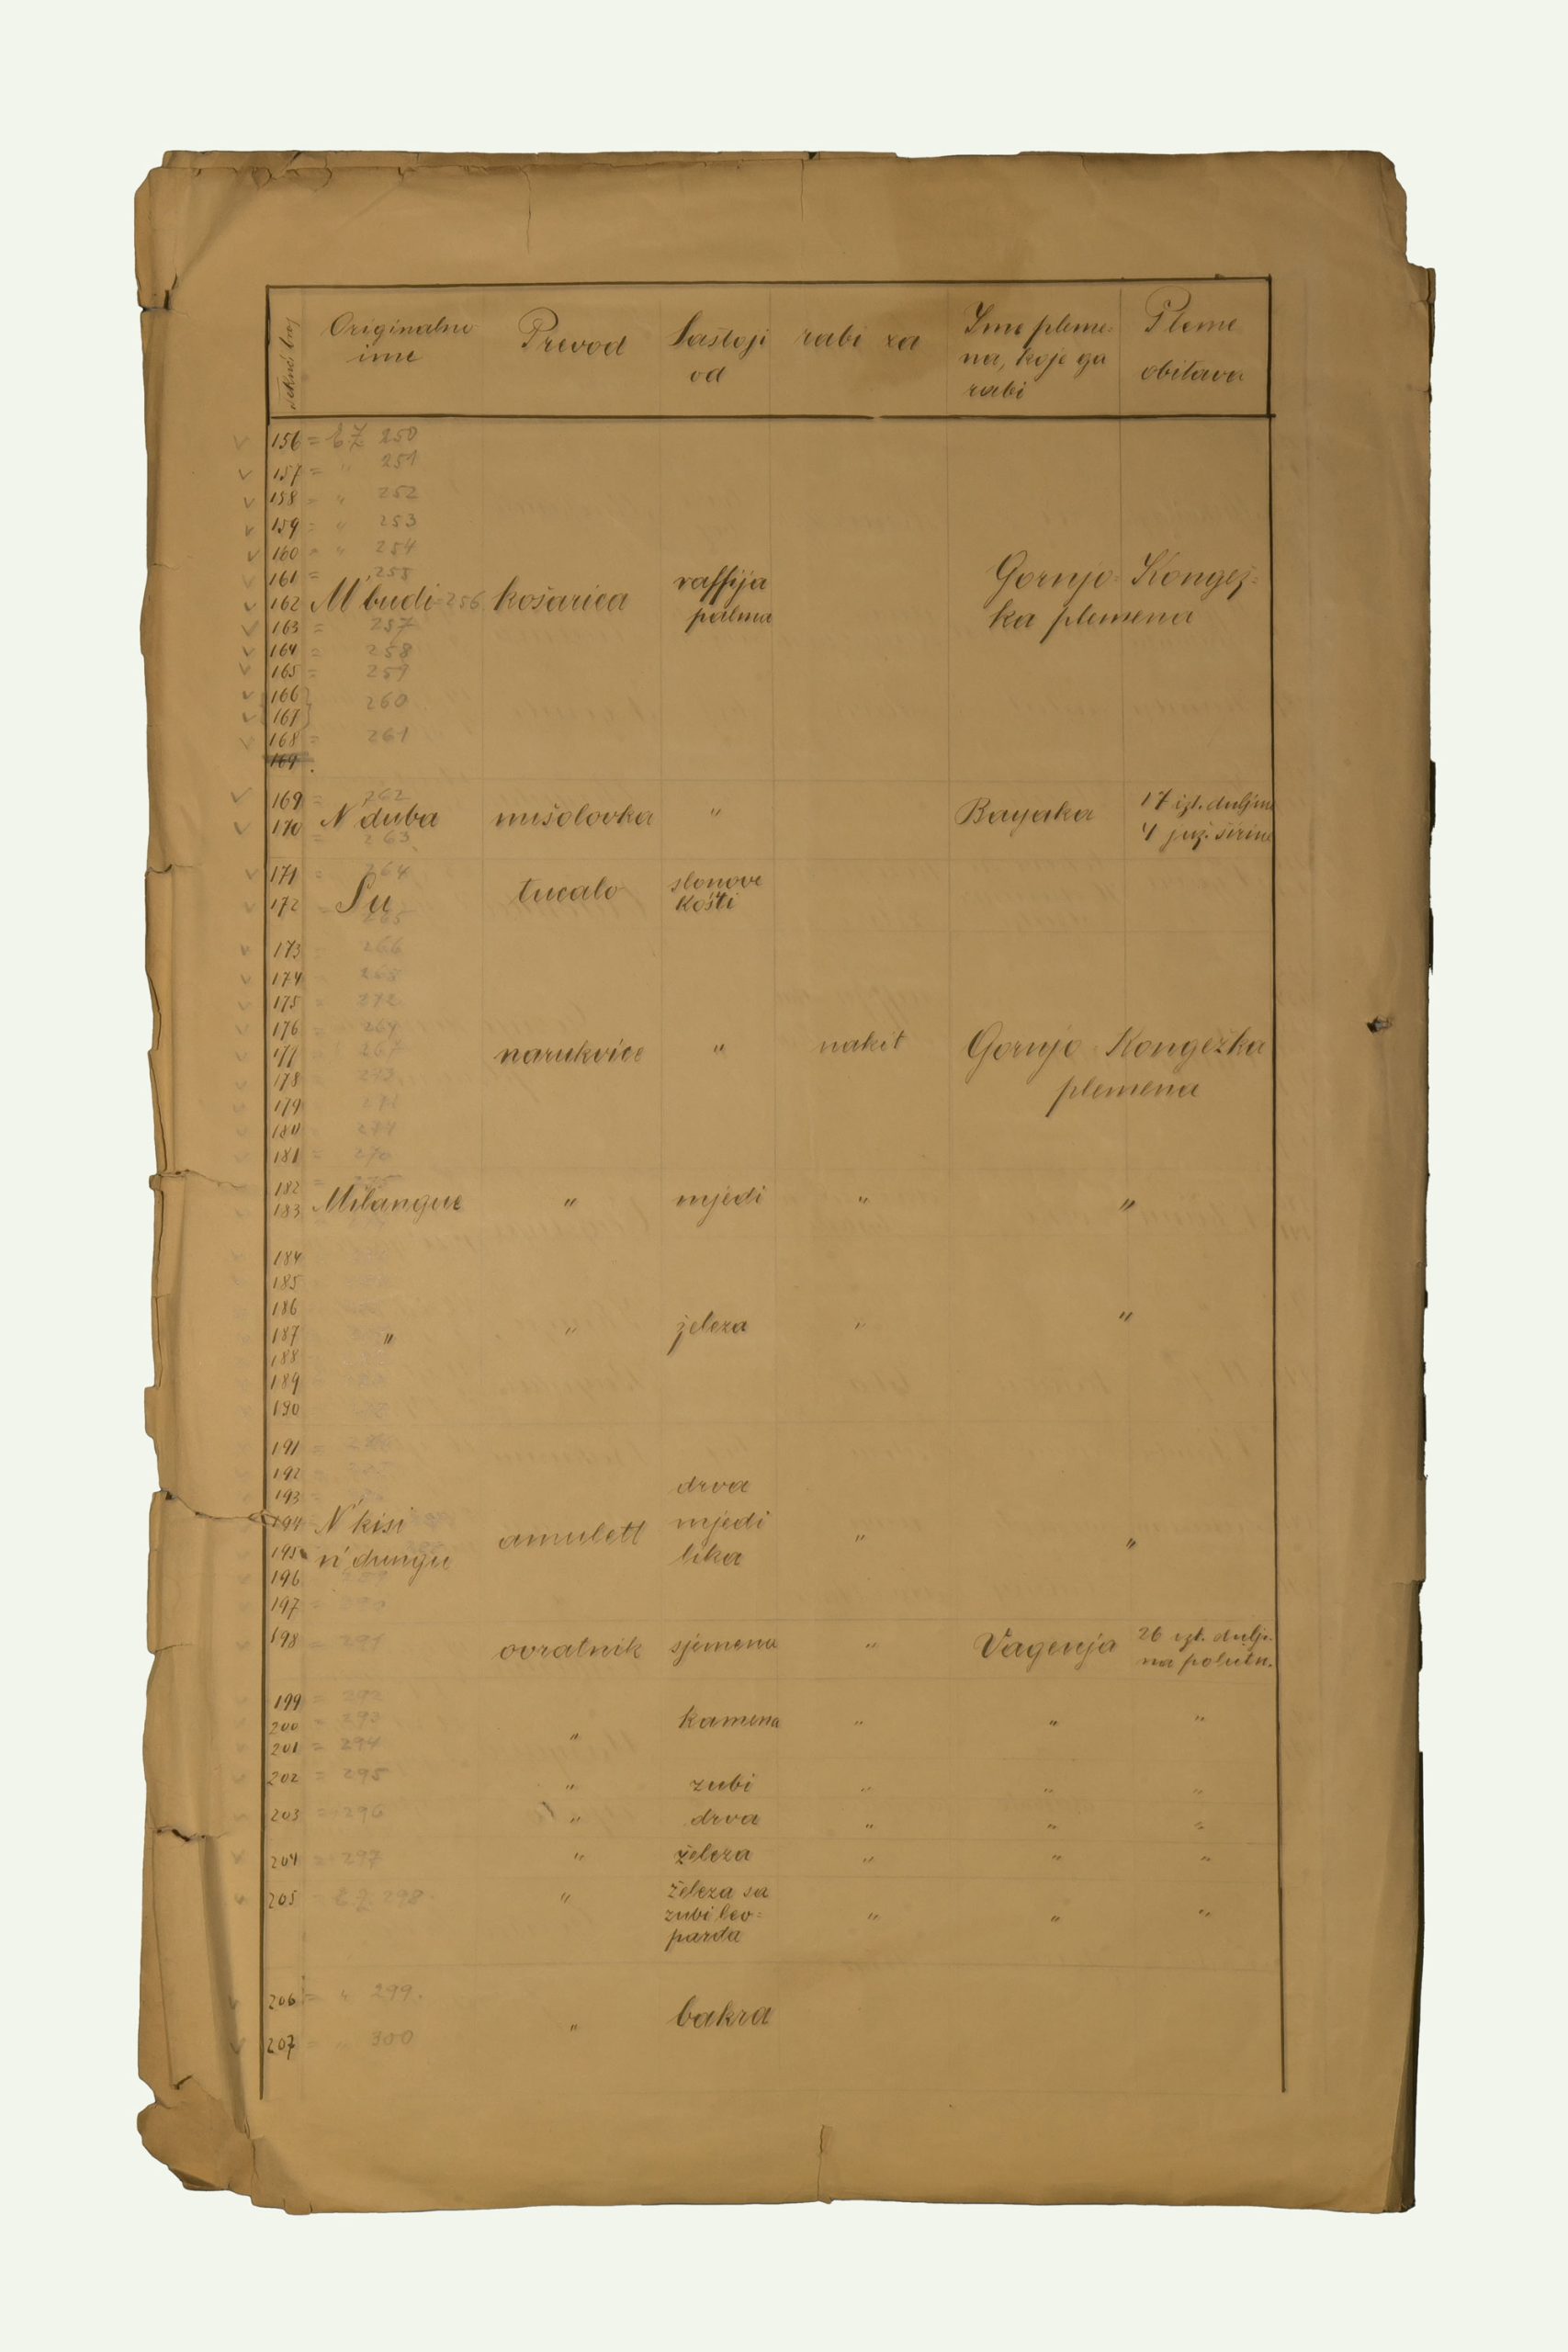 Tekući broj
Originalno ime
Prevod
Sastoji od
rabi za
Ime pleme-
na, koje ga
rabi
Pleme
obitava
156 = EZ 250
157 = " 251
158 = " 252
159 = " 253
160 = " 254
161 = 255
162 M'budi = 256 košarica raffija palma Gornjo-Kongež=
ka plemena
163 = 257
164 = 258
165 = 259
166
167 260
168 = 261
169
169 = 262
170 = 263 N'duba mišolovka " Bayaka 17 izt. duljine
4 juž. širine
171 = 264
172 = 265 Su tucalo slonove kosti
173 = 266
174 = 268
175 = 272
176 = 269
177 = 267 narukvice " nakit Gornjo Kongežka
plemena
178 = 273
179 = 271
180 = 274
181 = 270
182
183 Milangue " mjedi " "
184
185
186
187 " " železa " "
188
189
190
191 =
192
193 drva
194 N'kisi mjedi
195 n'dungu amulett lika " "
196
197 =
198 = 291 ovratnik sjemena " Vagenja 26 izt. dulji-
na polutn.
199 = 292
200 = 293 " kamena " " "
201 = 294
202 = 295 " zubi " " "
203 = 296 " drva " " "
204 = 297 " železa " " "
205 = EZ 298 " železa sa
zubi leo=
parda " " "
206 = " 299.
207 = " 300 " bakra